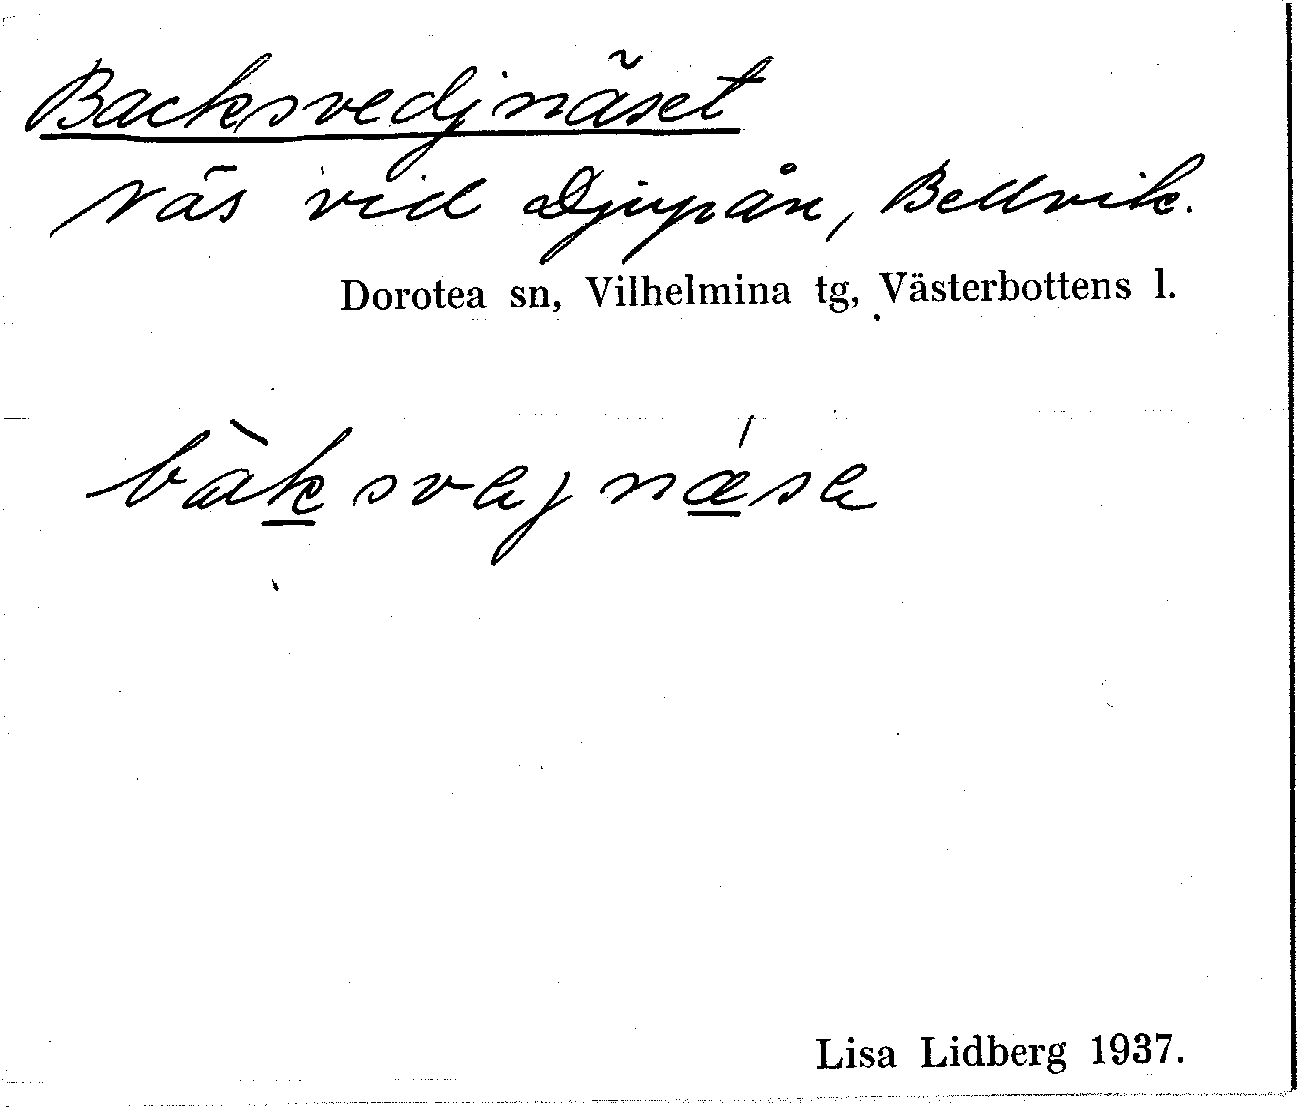 Backsvedjnäset
näs vid Djupån, Bellvik.
Dorotea sn, Vilhelmina tg, Västerbottens l.
bàksvajnǽsa
Lisa Lidberg 1937.